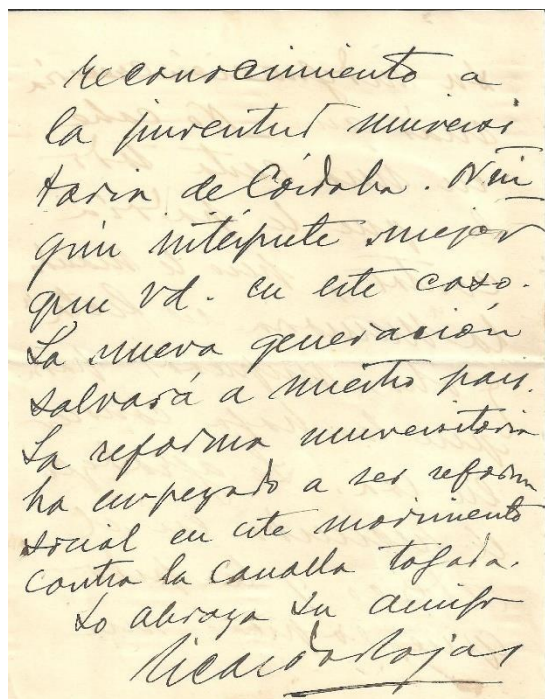 reconocimiento a
la juventud univerci
taria de Córdoba. Nin
gún intérpute mejor
que vd. en este caso.
La nueva generación
salvará a nuestro pais.
La reforma universitaria
ha empezado a ser reforma
social en este movimiento
contra la canalla togada.
Lo abraza su amigo
Ricardo Rojas